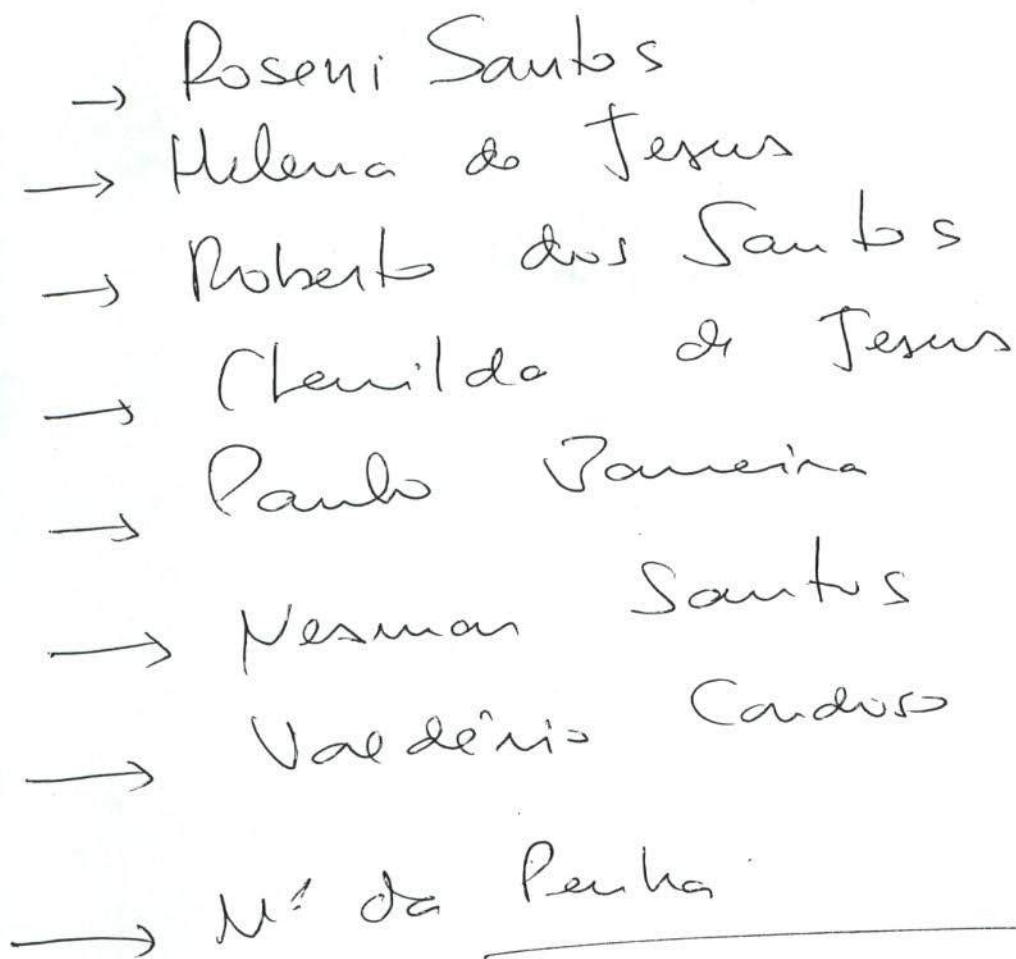 → Roseni Santos
→ Helena de Jesus
→ Roberto dos Santos
→ Clenilda de Jesus
→ Paulo
→ Nesmar Santos
→ Valdênio Cardoso
→ Mª da Penha